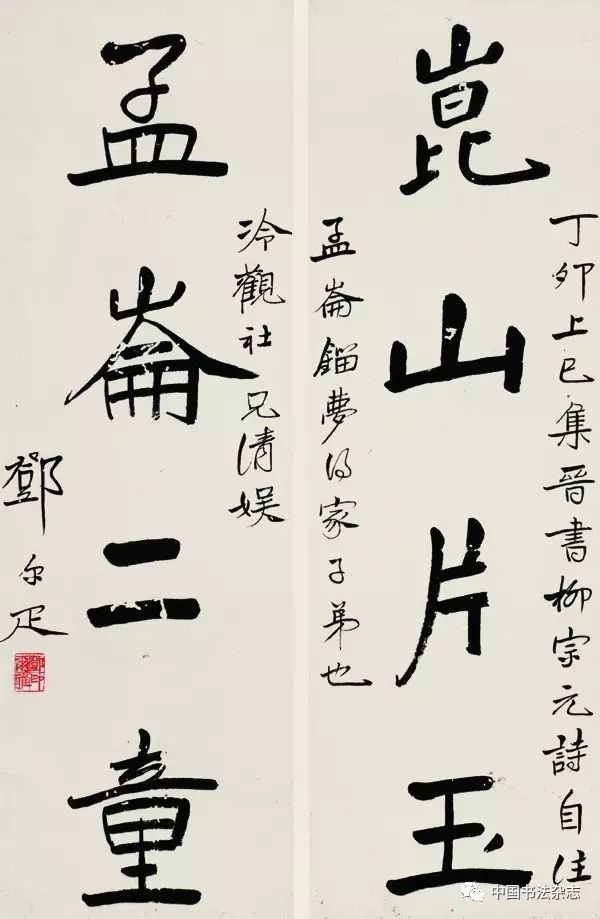 丁卯上巳集晉書柳宗元詩自注
崑山片玉
孟崙鎦夢得家子弟也
冷觀社兄清娱
孟崙二童
鄧尔疋
中国书法杂志